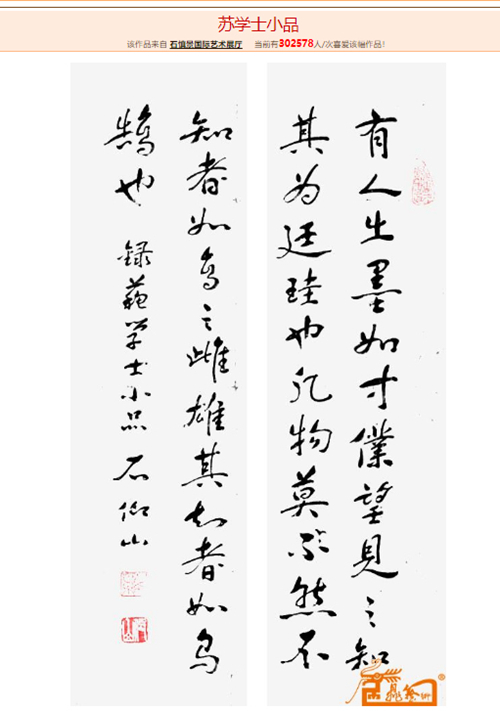 苏学士小品
该作品来自 石慎景国际艺术展厅 当前有302578人/次喜爱该幅作品!
有人出墨如寸僕望見之知
其为廷珪也凡物莫不然不
知者如乌之雌雄其知者如乌
鵠也 録蘓学士小品 石仰山